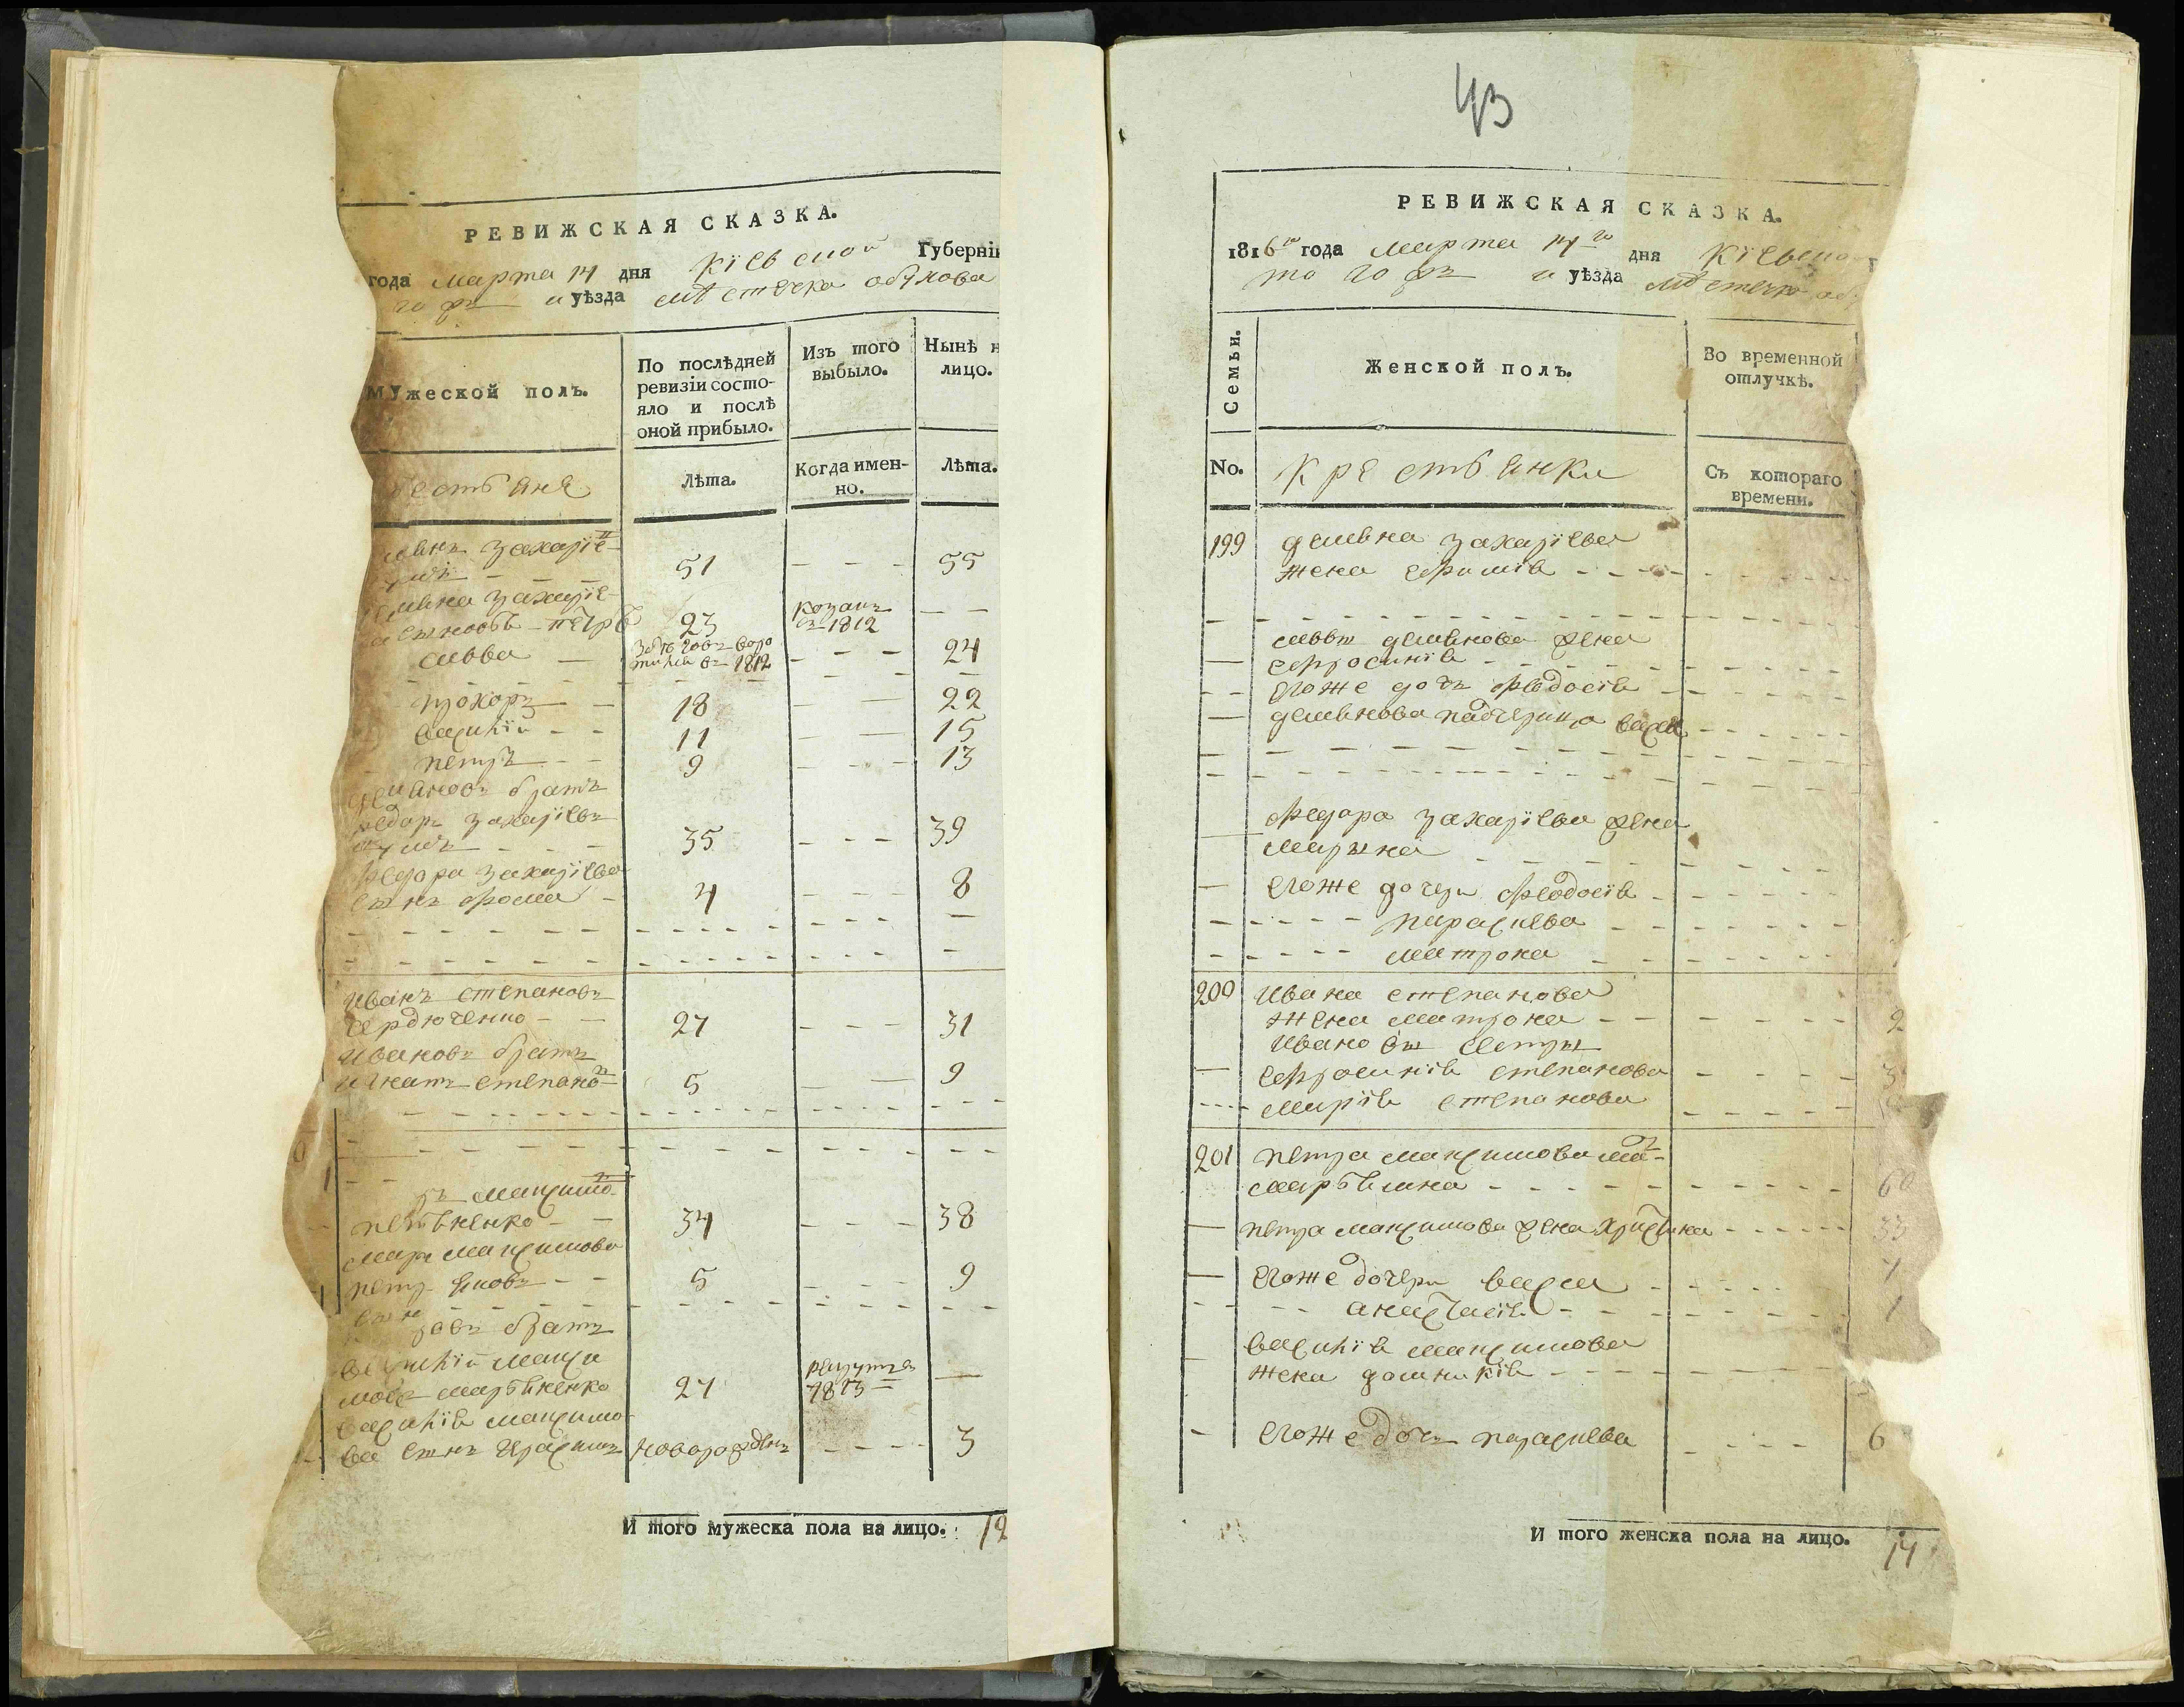 РЕВИЖСКАЯ СКАЗКА.
года марта 14 дня Кіевской Губерні
го и уѣзда мѣстечка обухова
мужеской полъ.
По послѣдней
ревизіи состо-
яло и послѣ
оной прибыло.
Изъ того
выбыло.
Нынѣ н
лицо.
естьяне
Лѣта.
Когда имен-
но.
Лѣта.
захаріе
51 55
захаріе
23 1812
савва в 1812 24
прохоръ 18 22
василій 11 15
петръ 9 13
братъ
федоръ захаріевъ
35 39
федора захаріева
сынъ фома 4 8
иванъ степановъ
сердюченко 27 31
ивановъ братъ
игнатъ степано 5 9
максимо
34 38
максимова
5 9
братъ
василій макси
мовъ 27 1813
василія максимо
ва сынъ герасимъ новорожденъ 3
И того мужеска пола на лицо. 12
43
РЕВИЖСКАЯ СКАЗКА.
1816го года марта 14го дня Кіевско
го и уѣзда мѣстечка обу
Семьи.
Женской полъ.
Во временной
отлучкѣ.
No.
крестьянки
Съ котораго
времени.
199 демяна захаріева
жена
саввы демянова жена
ефросинія
егоже дочь феодосія
демянова падчерица
федора захаріева жена
марина
егоже дочери феодосія
параскева
матрона
200 ивана степанова
жена матрона 2
ивановы сестры
ефросинія степанова 3
марія степанова
201 петра максимова ма
марьяна 60
петра максимова жена христина 33
егоже дочери васса 7
анастасія 1
василія максимова
жена домникія
егоже дочь параскева 6
И того женска пола на лицо. 14